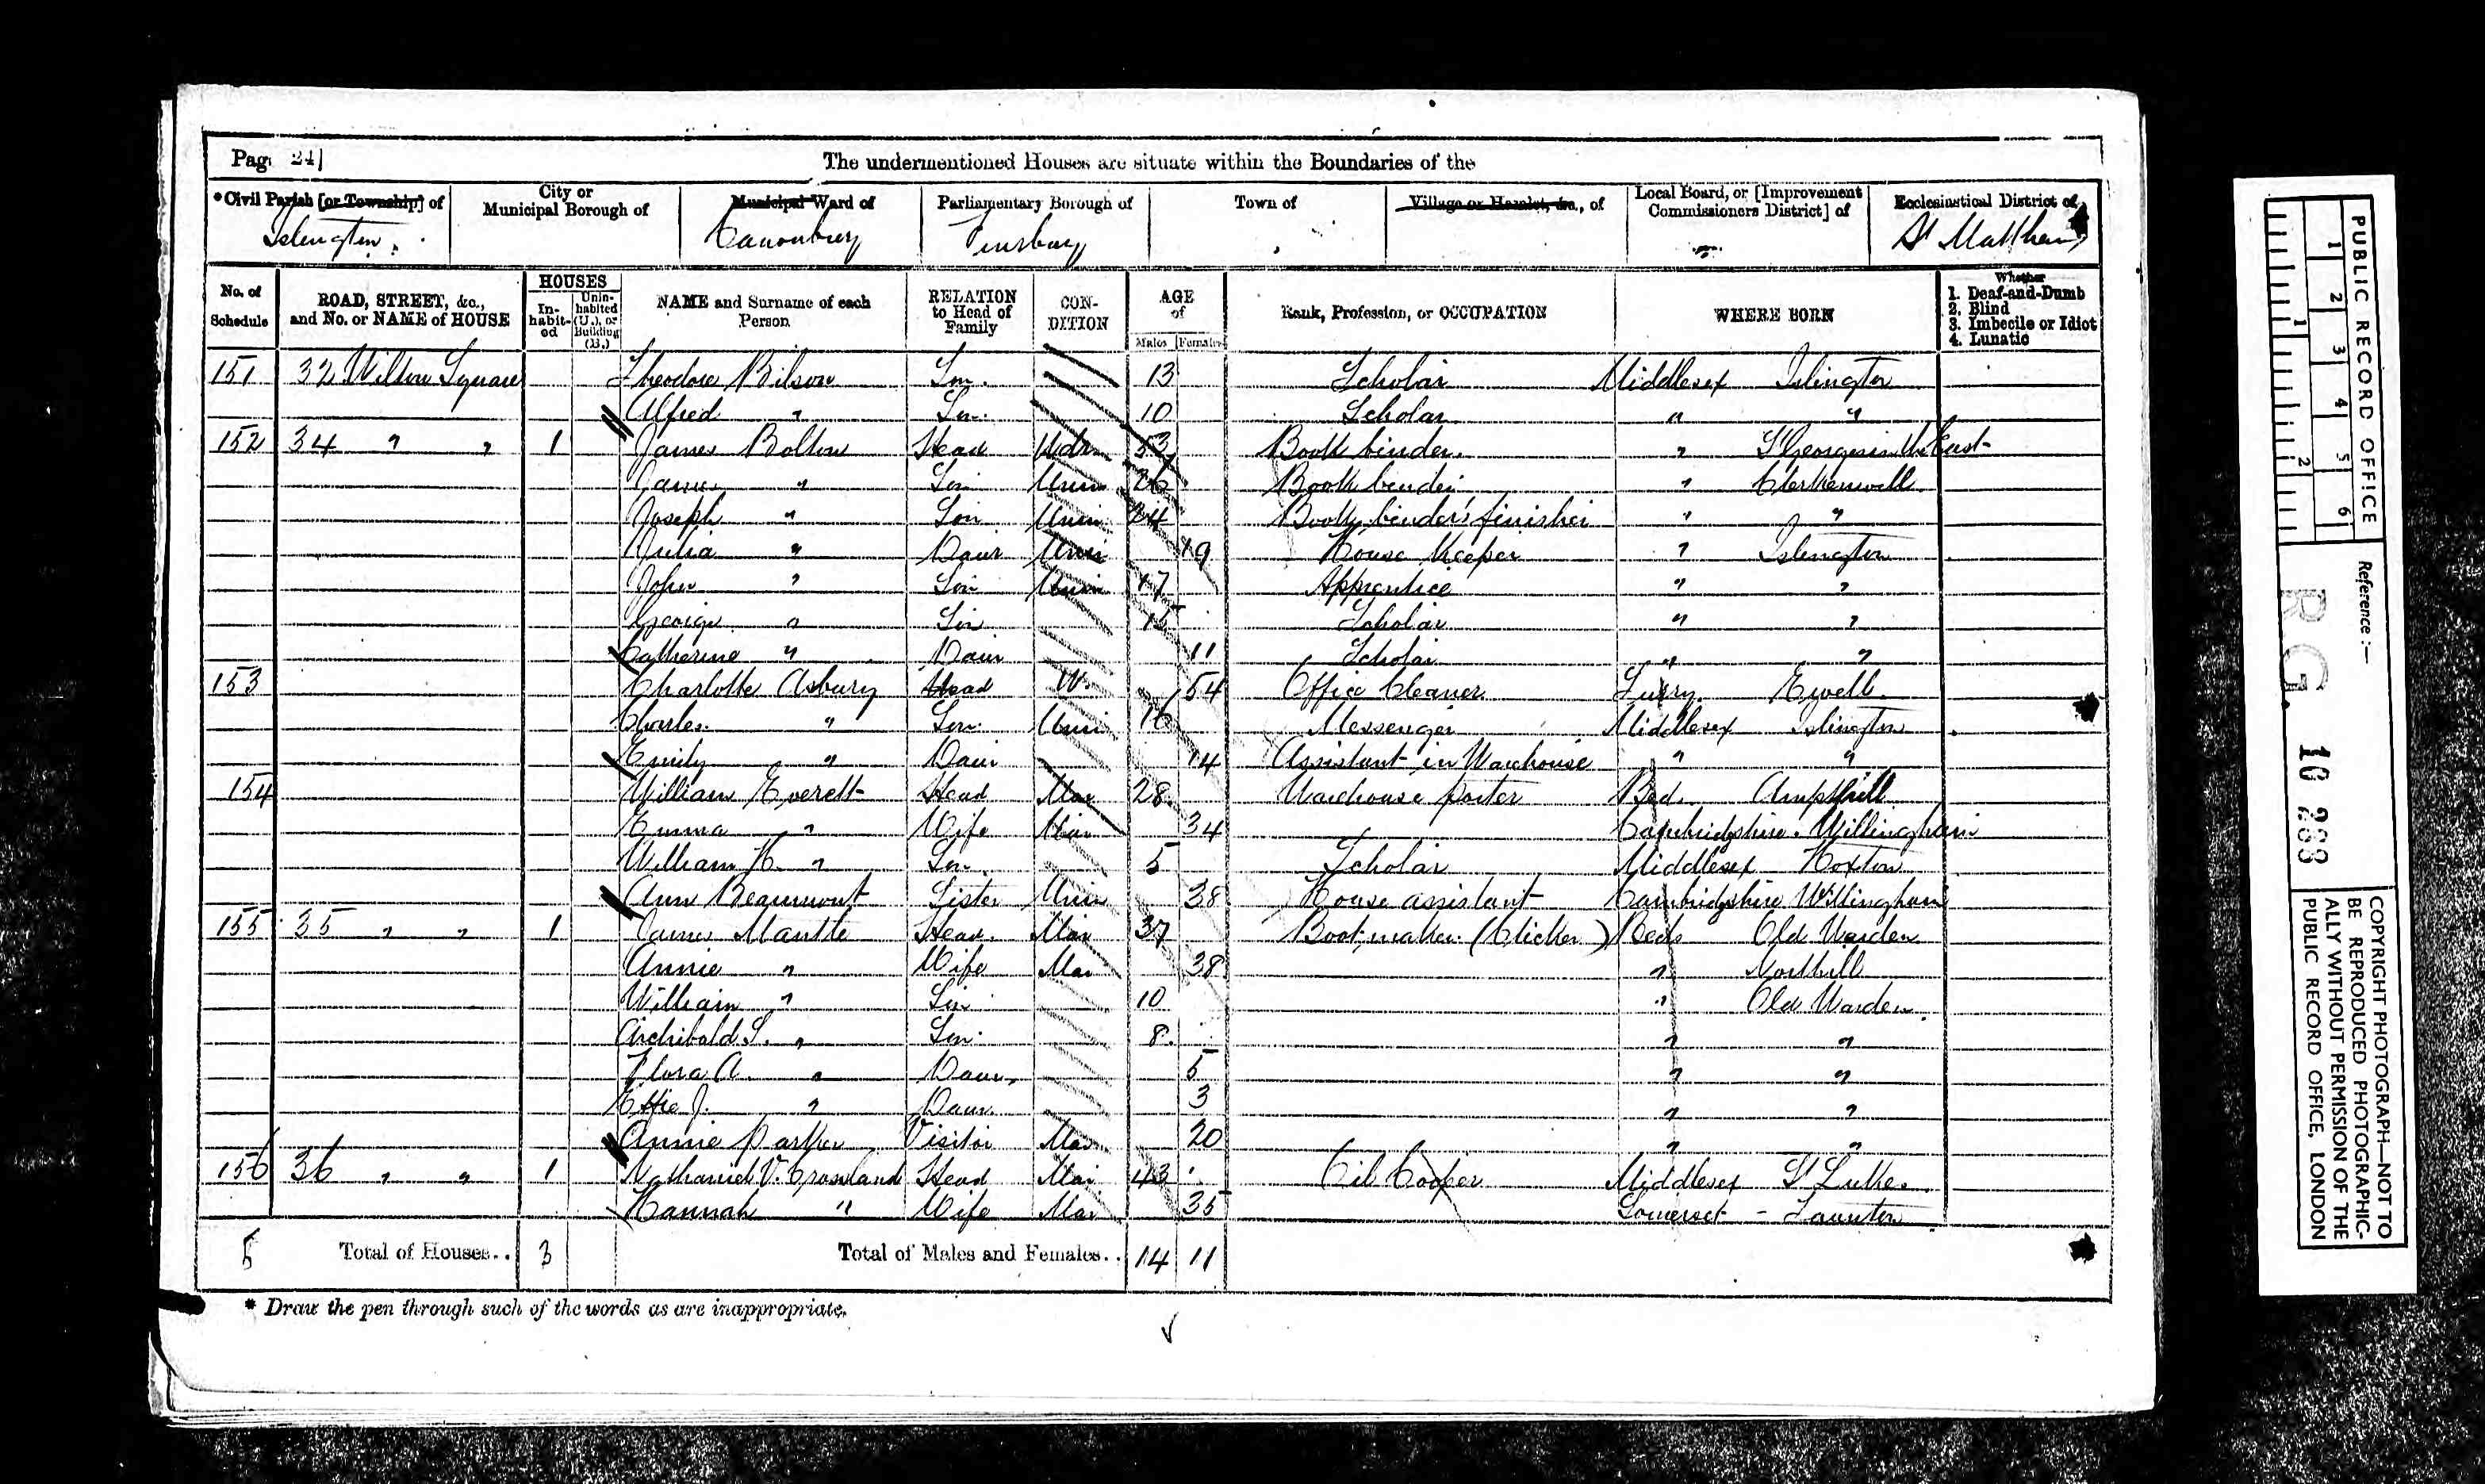 Page 24
The undermentioned Houses are situate within the Boundaries of the
*Civil Parish [or Township] of
Islington
City or Municipal Borough of
Municipal Ward of
Canonbury
Parliamentary Borough of
Finsbury
Town of
Village or Hamlet, &c., of
Local Board, or [Improvement Commissioners District] of
Ecclesiastical District of
St Matthew
No. of Schedule
ROAD, STREET, &c., and No. or NAME of HOUSE
HOUSES
In-habit-ed
Unin-habited (U.), or Building (B.)
NAME and Surname of each Person
RELATION to Head of Family
CON-DITION
AGE of
Males Females
Rank, Profession, or OCCUPATION
WHERE BORN
Whether
1. Deaf-and-Dumb
2. Blind
3. Imbecile or Idiot
4. Lunatic
151 32 Wilton Square Theodore Bilson Son 13 Scholar Middlesex Islington
Alfred " Son 10 Scholar " "
152 34 " " 1 James Bolton Head Wdr 53 Book binder " St Georges in the East
James " Son Unm 26 Book binder " Clerkenwell
Joseph " Son Unm 24 Book binder's finisher " "
Julia " Daur Unm 19 House Keeper " Islington
John " Son Unm 17 Apprentice " "
George " Son 15 Scholar " "
Catherine " Daur 11 Scholar " "
153 Charlotte Asbury Head W. 54 Office Cleaner Surry Ewell
Charles " Son Unm 16 Messenger Middlesex Islington
Emily " Daur 14 Assistant in Warehouse " "
154 William Everett Head Mar 28 Warehouse porter Beds Ampthill
Emma " Wife Mar 34 Cambridgshire Willingham
William H. " Son 5 Scholar Middlesex Hoxton
Ann Beaumont Sister Unm 38 House assistant Cambridgshire Willingham
155 35 " " 1 James Head Mar 37 Boot maker (Clicker) Beds Old Warden
Annie " Wife Mar 38 " Northill
William " Son 10 " Old Warden
Archibald S. " Son 8 " "
Flora A. " Daur 5 " "
Effie J. " Daur 3 " "
Annie Parker Visitor Mar 20 " "
156 36 " " 1 Nathaniel V. Crossland Head Mar 43 Oil Cooper Middlesex St Luke
Hannah " Wife Mar 35 Somerset - Taunton
5 Total of Houses.. 3 Total of Males and Females.. 14 11
* Draw the pen through such of the words as are inappropriate.
PUBLIC RECORD OFFICE
1 2 3 4 5 6
1 2
Reference :-
RG. 10 283
COPYRIGHT PHOTOGRAPH—NOT TO
BE REPRODUCED PHOTOGRAPHIC-
ALLY WITHOUT PERMISSION OF THE
PUBLIC RECORD OFFICE, LONDON